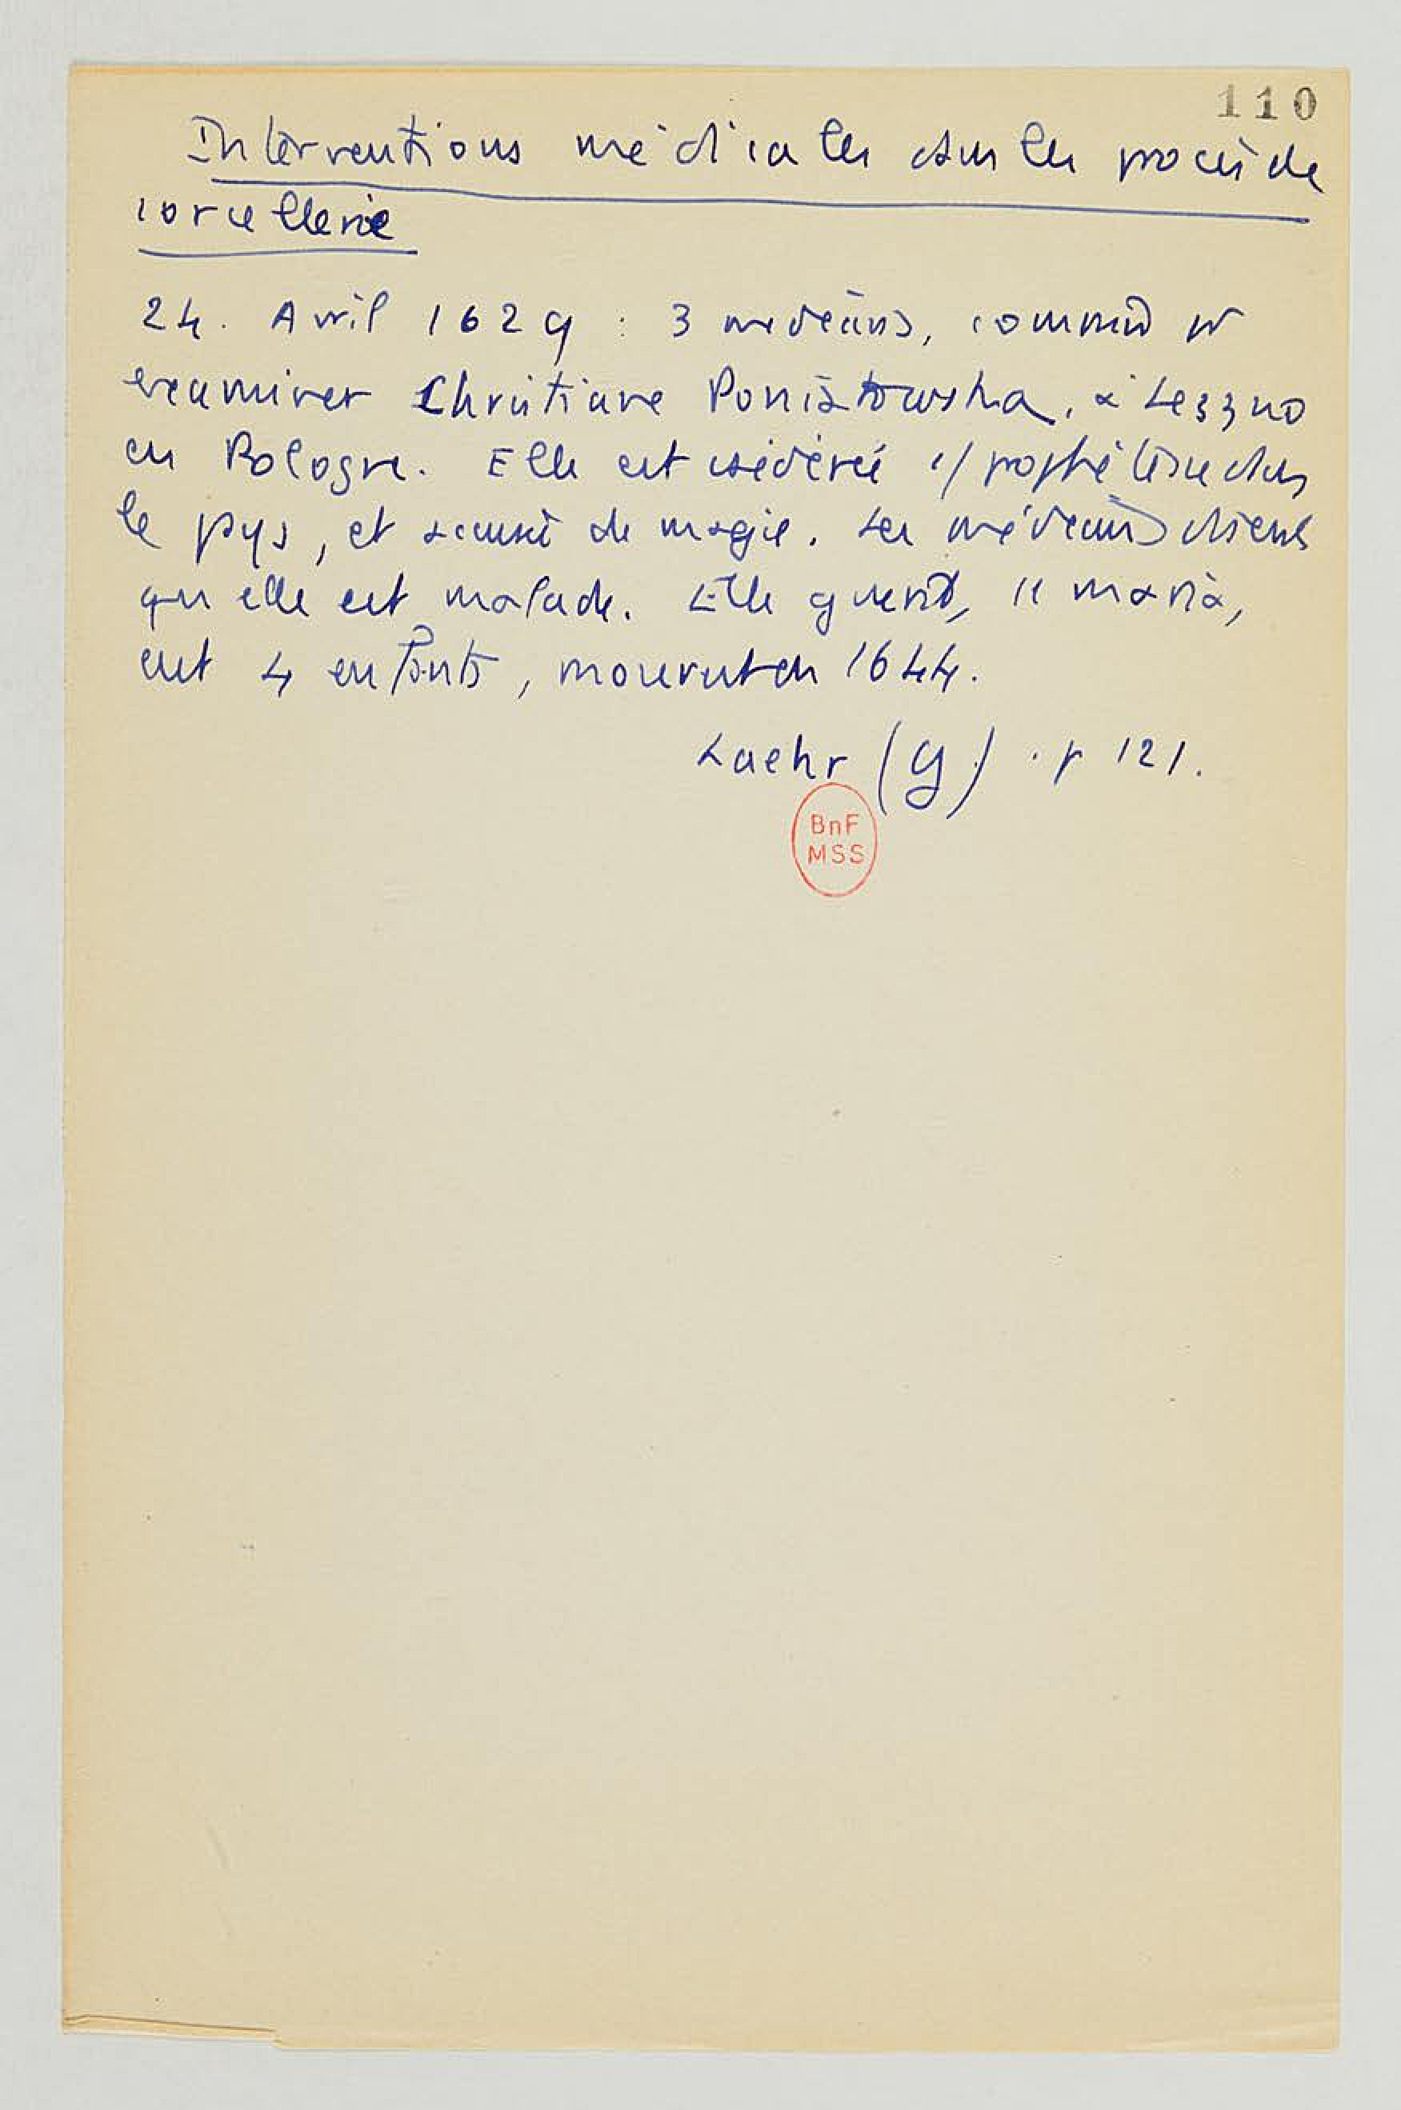 110
Interventions médicales dans les procès de
sorcellerie
24. Avril 1629 : 3 médecins, commis pr
examiner Christiane Poniatowska, à Leszno
en Pologne. Elle est csidérée c/ prophétesse dans
le pays, et accusée de magie. Les médecins disent
qu elle est malade. Elle guérit, se maria,
eut 4 enfants, mourut en 1644.
Laehr (G) . p 121.
BnF
MSS